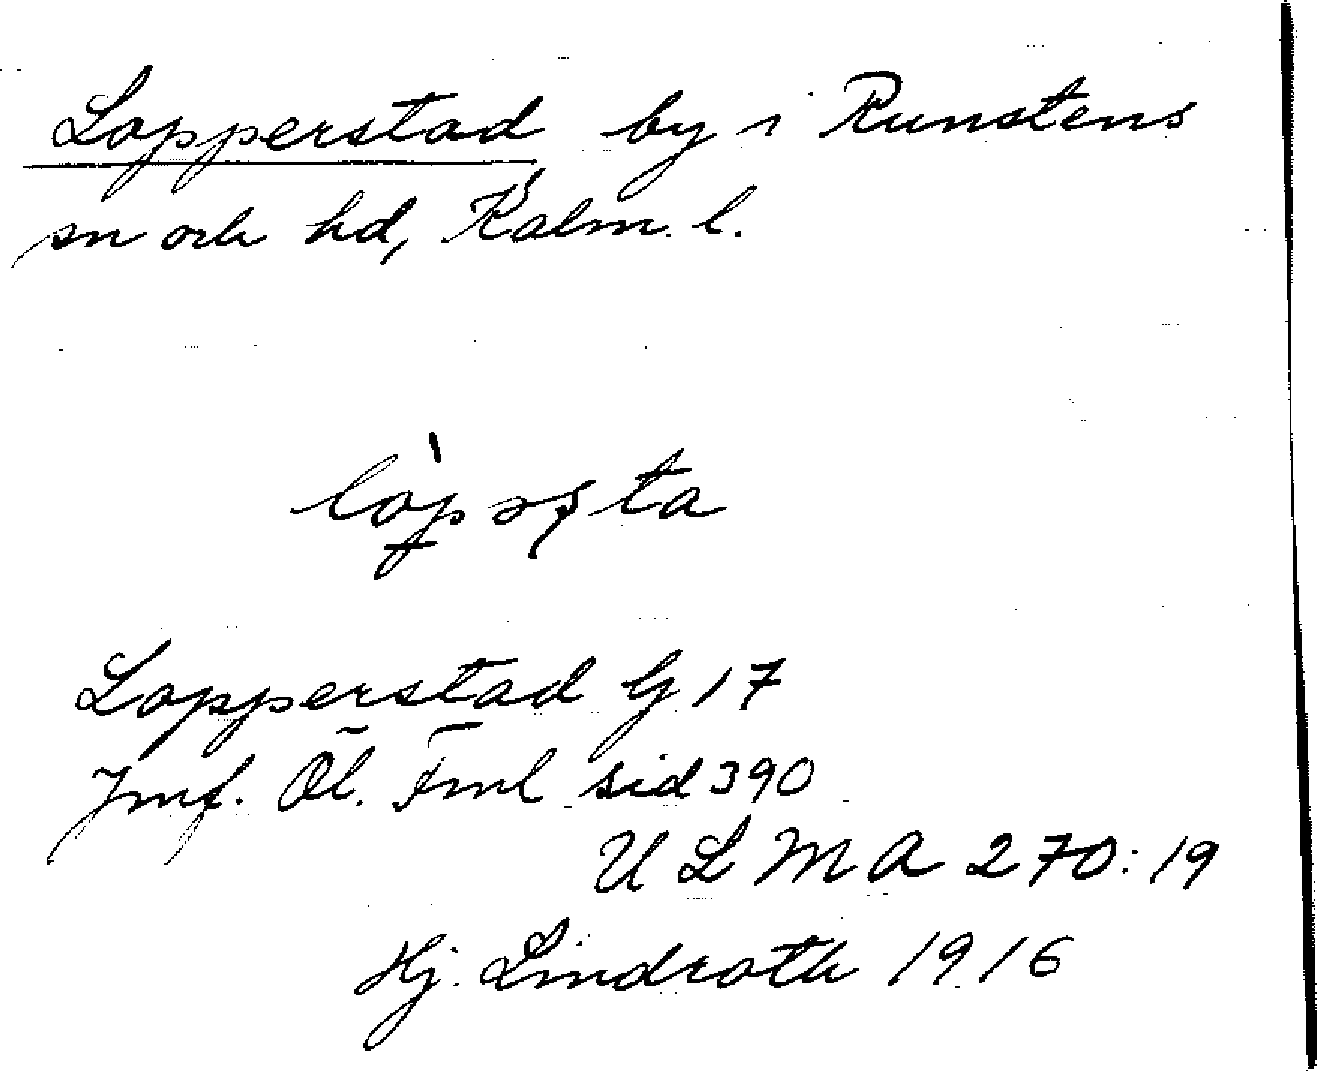 Lopperstad by i Runstens
sn och hd, Kalm. l.
Lopperstad G 17
Jmf. Öl. Fml sid 390
U L M A 270:19
Hj. Lindroth 1916